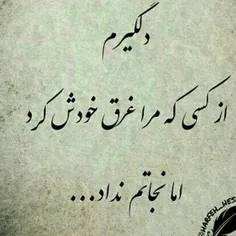 دلگیرم
از کسی که مرا غرق خودش کرد
اما نجاتم نداد...